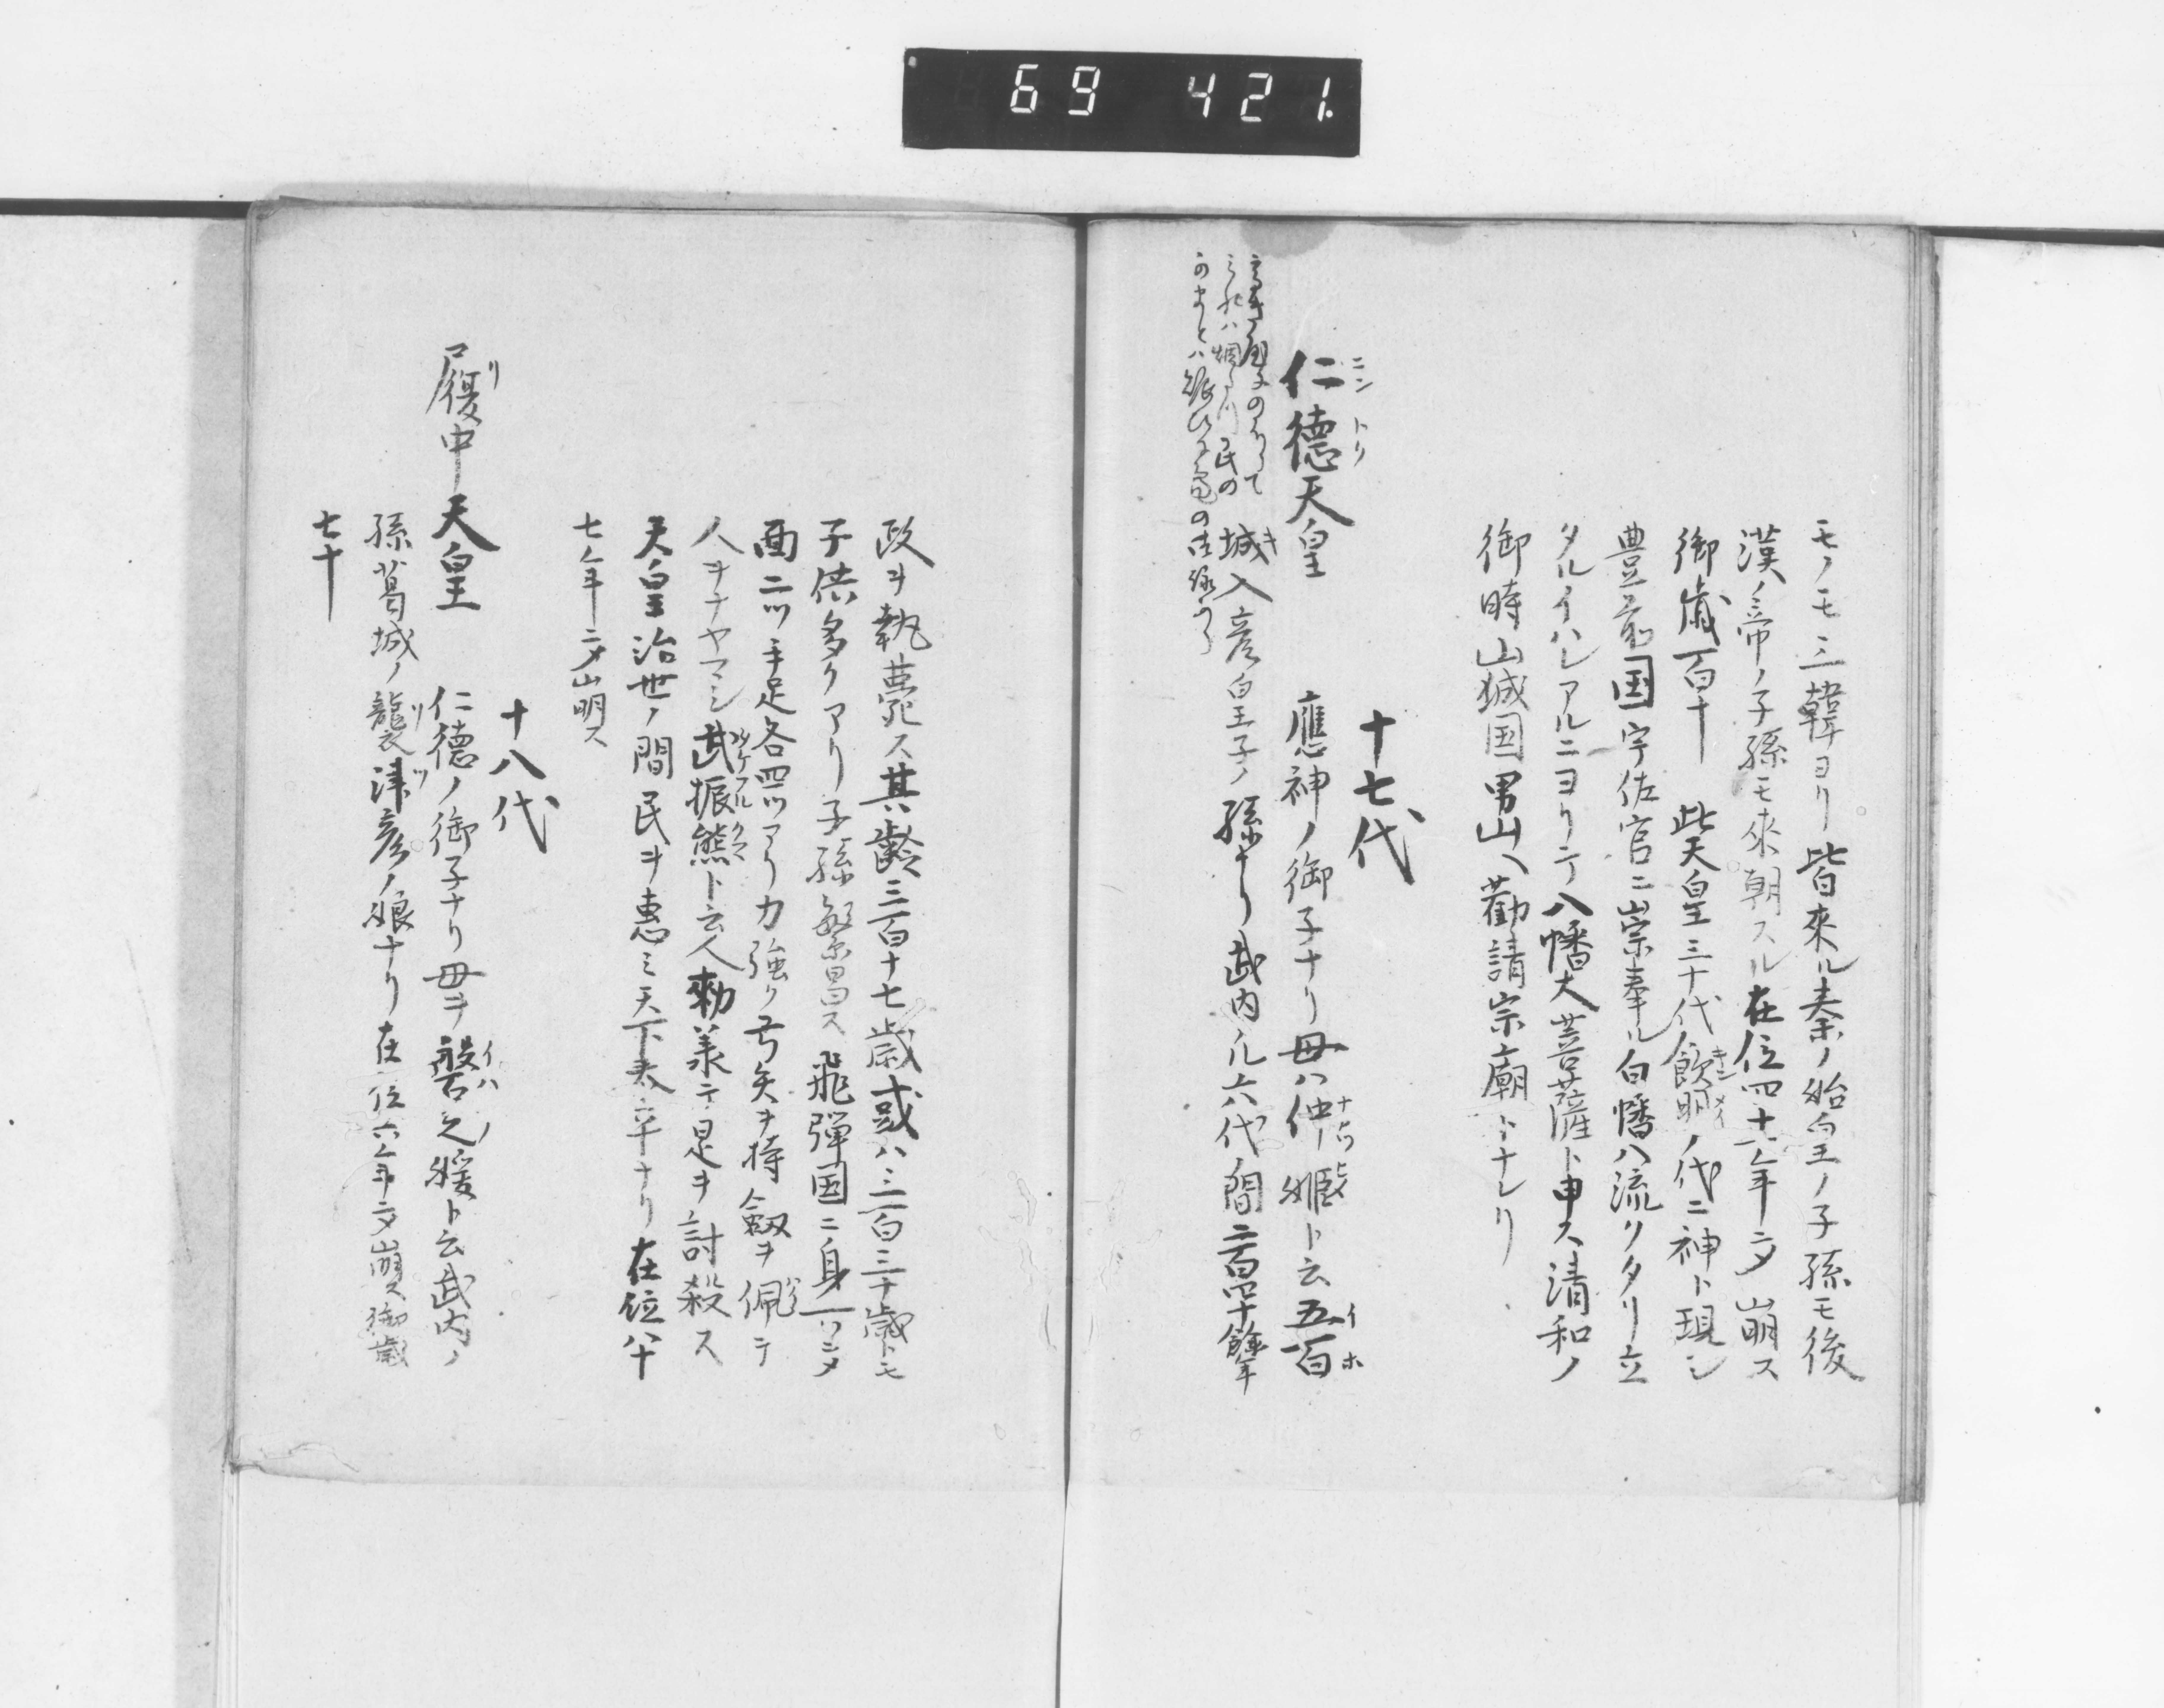 69 421.
モノモ三韓ヨリ皆來ル秦ノ始皇ノ子孫モ後
漢ノ帝ノ子孫モ來朝スル在位四十一年ニメ崩ス
御歳百十 此天皇三十代ノ欽明ノ代ニ神ト現シ
キンメイ
豊前国宇佐宮ニ崇奉ル白幡八流リタリ立
タルイハレアルニヨリテ八幡大菩薩ト申ス清和ノ
御時山城国男山ヘ勸請宗廟トナレリ
十七代
仁德天皇 應神ノ御子ナリ母ハ仲姫ト云五百
ニントク ナカツヒメ イホ
城入彦皇子ノ孫ナリ武内ハ六代ノ間二百四十餘年
キ
高き屋にのほりて
みれは烟たつ民の
かまとは賑ひにけり
政ヲ執薨ス其齢三百十七歳或ハ三百三十歳トモ
子供多クアリ子孫繁昌ス飛弾国ニ身一ニメ
面二ツ手足各四ツアリ力強ク弓矢ヲ持劔ヲ佩テ
人ヲナヤマシ武振熊ト云人勅羕テ是ヲ討殺ス
タケフルクマ
天皇治世ノ間民ヲ惠ミ天下太平ナリ在位八十
七年ニメ崩ス
十八代
履中天皇 仁德ノ御子ナリ母ヲ磐之媛ト云武内ノ
リ イハノ
孫葛城ノ襲津彦ノ娘ナリ在位六年ニメ崩ス御歳
七十